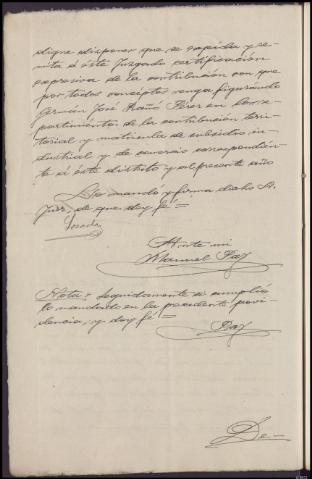 digne disponer que se expida y re-
mita á éste Juzgado certificación
expresiva de la contribución con que
por todos conceptos venga figurando
Germán José Pérez en los re-
partimientos de la contribución terri-
torial y matrícula de subsidio in-
dustrial y de comercio correspondien-
te á éste distrito y al presente año
Lo mandó y firma dicho Sr.
Juez, de que doy fé =
Losada
Ante mi
Manuel Paz
Nota: Seguidamente se cumplió
lo mandado en la precedente provi-
dencia, y doy fé =
Paz
De-